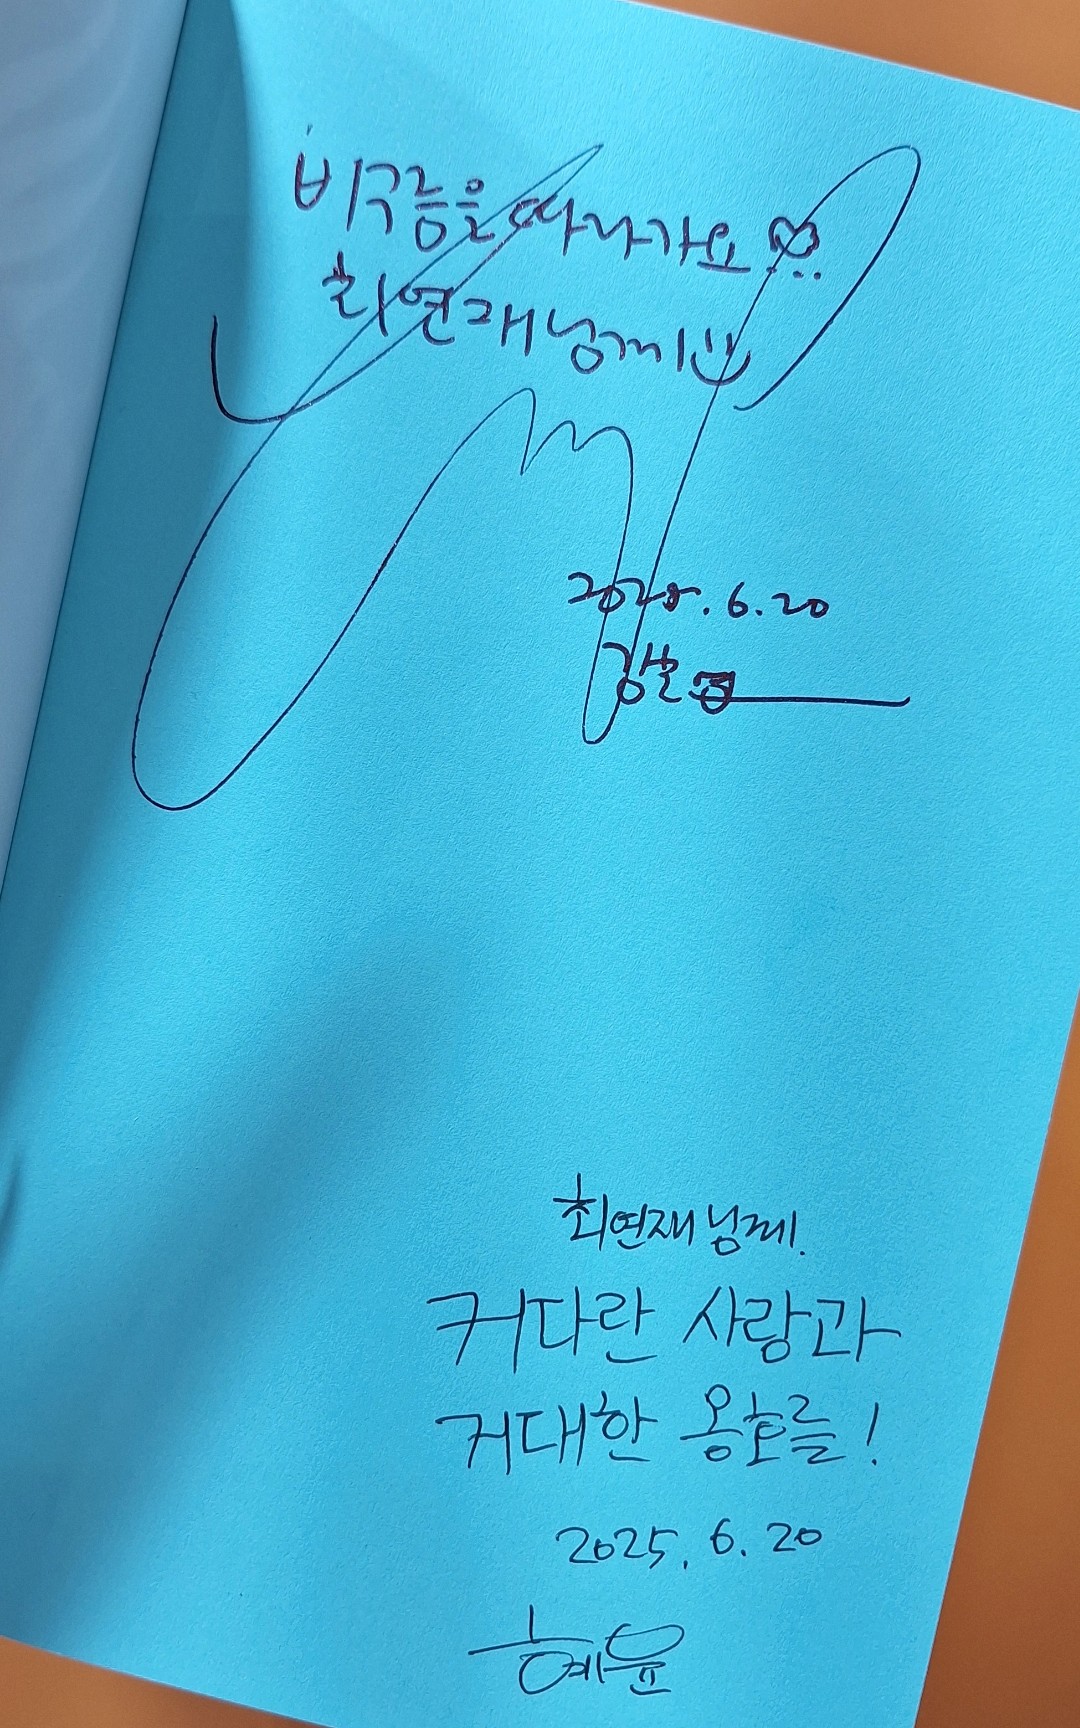 비구름을 따라가요♡...
최연재님께
2025.6.20
최연재님께.
커다란 사랑과
거대한 옹호를!
2025. 6. 20
혜윤